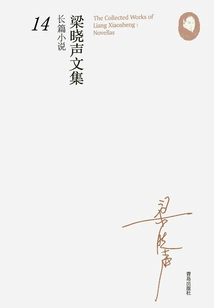 The Collected Works of
Liang Xiaosheng :
Novellas
梁晓声文集
长篇小说
14
梁晓声
青岛出版社